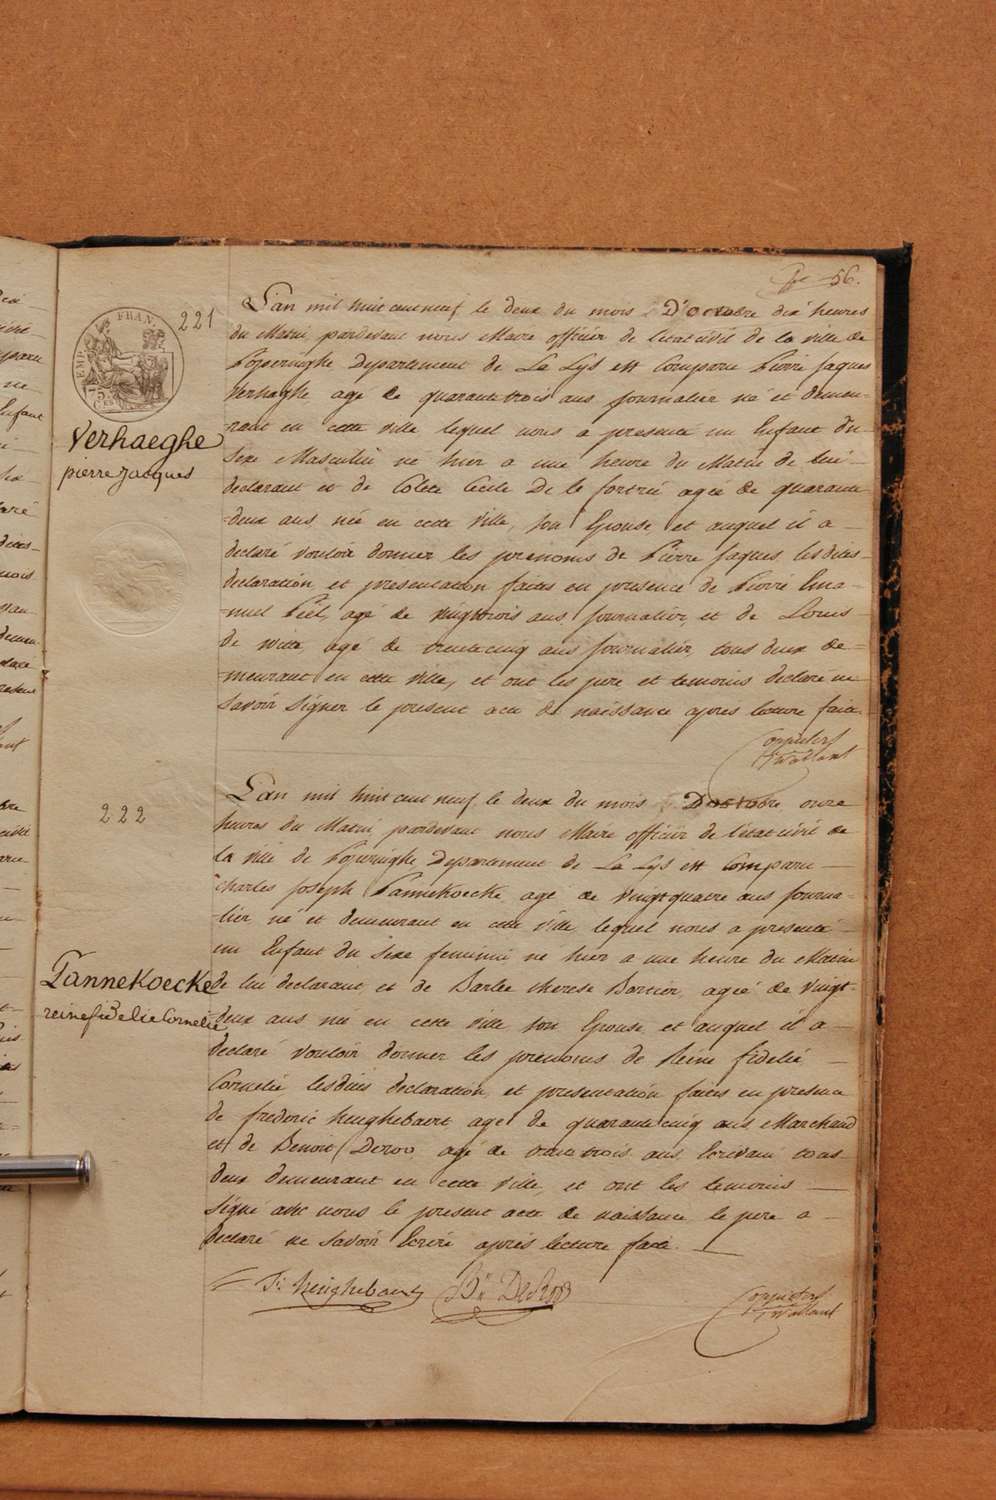 fe 56.
221
L'an mil huit cent neuf le deux du mois D'octobre dix heures
du Matin pardevant nous Maire officier de l'état civil de la ville de
Poperinghe departement de La Lys est Comparu Pierre Jaques
Verhaghe agé de quarante trois ans journalier né et demeu-
rant en cette ville lequel nous a presenté un Enfant du
Sexe Masculin né hier a une heure du Matin de lui
declarant et de Colete Cecile De le fortrie agée de quarante
deux ans, née en cette Ville, son Epouse, et auquel il a
declaré vouloir donner les prenoms de Pierre Jaques lesdites
declaration et presentation faites en presence de Pierre Ema-
nuel Piel, agé de vingttrois ans journalier et de Louis
de Witte agé de trentecinq ans journalier, tous deux de-
meurant en cette Ville, et ont les pere et temoins declaré ne
Savoir Signer le present acte de naissance apres lecture faite.
Verhaeghe
pierre Jacques
EMP. FRAN.
222
L'an mil huit cent neuf le deux du mois D'octobre onze
heures du Matin, pardevant nous Maire officier de l'état civil de
la ville de Poperinghe departement de La Lys est Comparu
Charles Joseph Pannekoecke agé de Vingtquatre ans journa-
lier né et demeurant en cette Ville lequel nous a presenté
un Enfant du Sexe feminin né hier a une heure du Matin
de lui declarant, et de Barbe therese Bortier, agée de Vingt-
deux ans née en cette Ville son Epouse, et auquel il a
declaré vouloir donner les prenoms de Reine fidelié
Cornelié lesdites declaration, et presentation faites en presence
de frederic henghebaert agé de quarantecinq ans Marchand
et de Benoit Deroo agé de trentetrois ans Ecrivain tous
deux demeurant en cette Ville, et ont les temoins
Signé avec nous le present acte de naissance le pere a
declaré ne Savoir Ecrire après lecture faite.
Pannekoecke
reine fidelie Cornelie
F: Henghebaert
B.n DeRoo